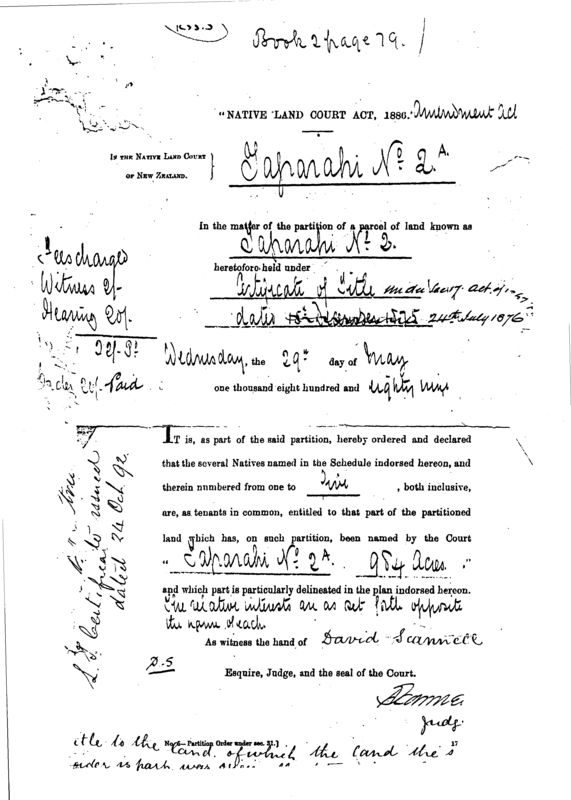 Book 2 page 79.
"NATIVE LAND COURT ACT, 1886. Amendment Act
IN THE NATIVE LAND COURT
OF NEW ZEALAND.
Taparahi No 2.A.
In the matter of the partition of a parcel of land known as
Taparahi No 2.
heretofore held under
Certificate of Title under
dated 24th July 1876
Fees charged
Witness 2/-
Hearing 20/-
Order 20/- Paid
Wednesday, the 29th day of May
one thousand eight hundred and eighty nine
IT is, as part of the said partition, hereby ordered and declared
that the several Natives named in the Schedule indorsed hereon, and
therein numbered from one to , both inclusive,
are, as tenants in common, entitled to that part of the partitioned
land which has, on such partition, been named by the Court
" Taparahi No 2A. 984 Acres. "
and which part is particularly delineated in the plan indorsed hereon.
The relative interests are as set forth opposite
the name of each
As witness the hand of David Scannell
D.S
Esquire, Judge, and the seal of the Court.
Judge
L. T. Certificate issued
dated 24 Oct. 92.
No. 6—Partition Order under sec. 21.]
17
itle to the land of which the land the s
order is part was